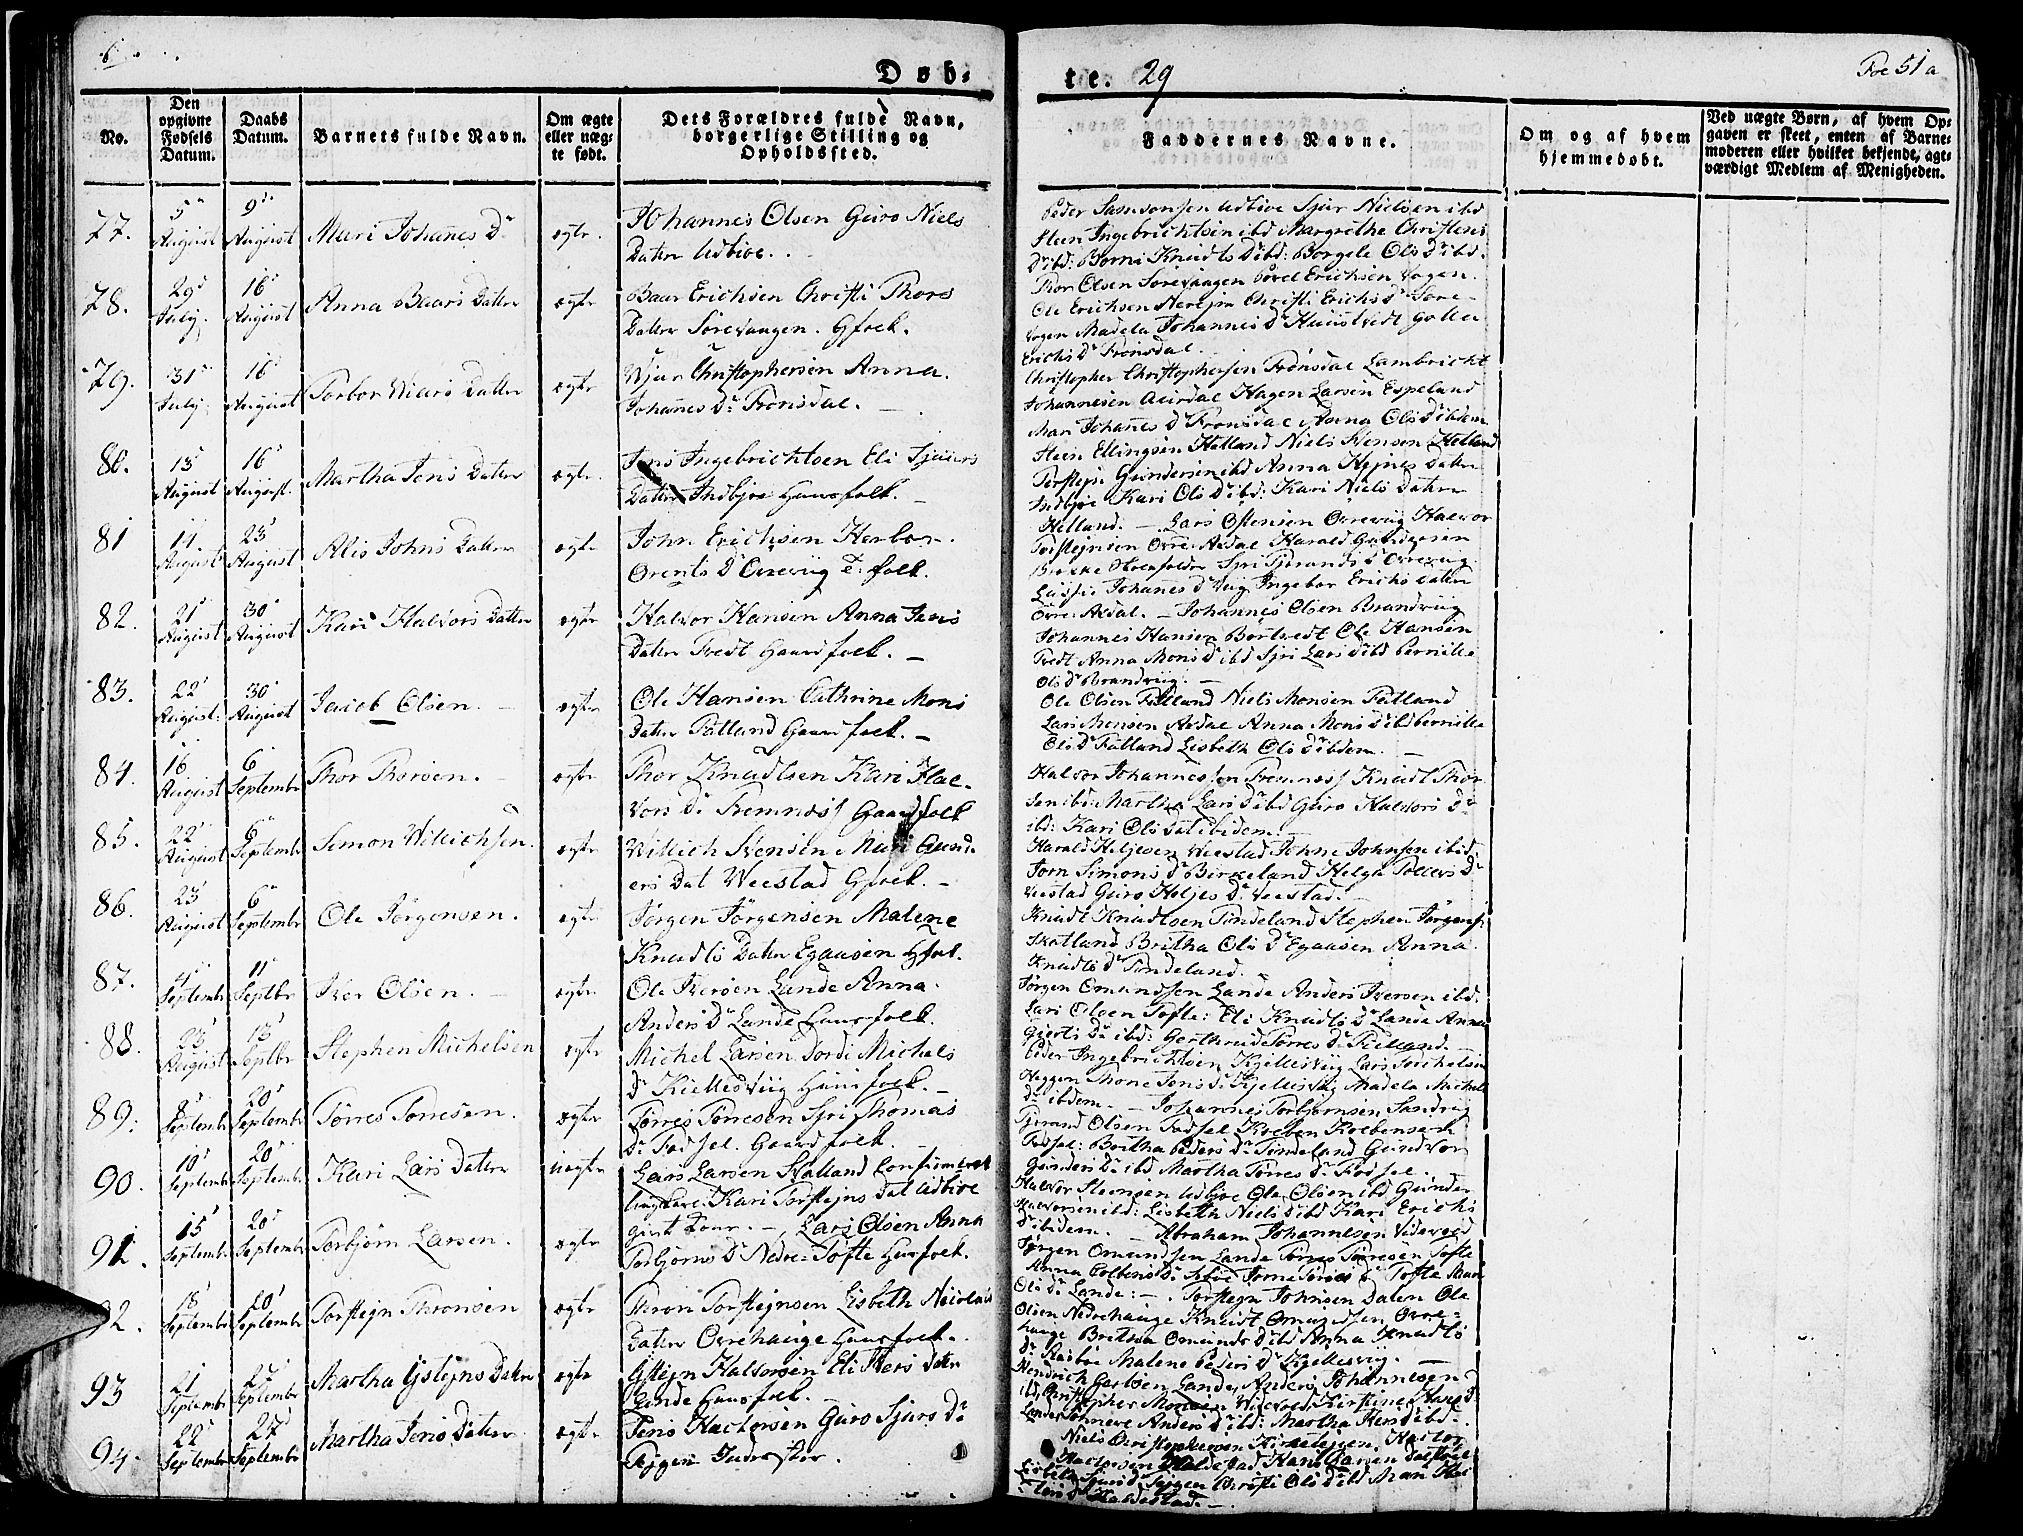 Døb-
te. 29
Fol 51 a
No.
Den opgivne Fødsels Datum.
Daabs Datum.
Barnets fulde Navn.
Om ægte eller uægte født.
Dets Forældres fulde Navn, borgerlige Stilling og Opholdssted.
Faddernes Navne.
Om og af hvem hjemmedøbt.
Ved uægte Børn, af hvem Opgaven er skeet, enten af Barnemoderen eller hvilket bekjendt, agtværdigt Medlem af Menigheden.
77. 5 August 9 August Mari Johanes Dr ægte. Johannes Olsen Guro Niels
Datter Udbioe.
Peder Samsonsen Udbioe Sjur Nielsen ibd
Steen Ingebrichtsen ibd Margrethe Christens
Dr ibd: Borni Knudts D ibd: Borgele Ols Dr ibd.
78. 29 July 16 August Anna Baars Datter ægte Baar Erichsen Christi Thors
Datter Sørevaagen. Gfolk.
Thor Olsen Sørevaagen Povel Erichsen Vagen.
Ole Erichsen Christi Erichs Dr Søre-
vagen Madela Johannes Dr
Erichs Dr Frønsdal.
79. 31 July 16 August Torbor Wiars Datter ægte Wjar Christophersen Anna
Johanes Dr Frønsdal.
Christopher Christophersen Frønsdal Lambricht
Johannesen Hagen Larsen Espeland
Mari Johanes D Frønsdal Anna Ols D ibdem
80. 13 August 16 August. Martha Jens Datter ægte. Jens Ingebrichtsen Eli Sjuurs
Datter Indbjoe Huusfolk.
Steen Ellingsen Hetland Niels Stensen Hetland
Torstejn Gundersen ibd Anna Datter
Indbjoe Kari Ols D ibd: Kari Niels Datter
Hetland.
81 14 August 23 August Alis Johns Datter ægte John Erichsen Herbor
Orents D Orreviig folk.
Lars Ostensen Orreviig Halvor
Torstejnsen Orre Axdal Harald Gundersen
Siri Tjerands D Orreviig
Johanes D Ingebor Erichs Datter
Orre Axdal.
82. 21 August 30 August Kari Halvors Datter ægte Halvor Hansen Anna Jens
Datter Tvedt Gaardfolk.
Johannes Olsen Brandviig
Johannes Hansen Bortvedt Ole Hansen
Tvedt Anna Mons D ibd Siri Lars D ibd Pernille
Ols D Brandviig.
83. 22 August. 30 August Jacob Olsen. ægte Ole Hansen Cathrine Mons
Datter Fatland Gaardfolk.
Ole Olsen Fatland Niels Monsen Fatland
Lars Monsen Axdal Anna Mons D ibd Pernille
Ols D Fatland Lisbeth Ols D ibdem.
84. 16 August 6 Septembr Thor Thorsen. ægte Thor Knudtsen Kari Hal-
vors Dr Fremnes Gaardfolk
Halvor Johannessen Fremnes Knudt Thor
sen ibd: Martha Lars D ibd Guro Halvors Dr
ibd: Kari Ols Dat ibidem.
85. 22 August 6 Septembr Simon Willichsen. ægte Willich Svensen Mari Gund-
ers Dat Weestad Gfolk.
Harald Heljesen Weestad Johne Johnsen ibid
Jorn Simons D Birkeland Helga Dr
Veestad Guro Heljes Dr Veestad.
86. 23 August 6 Septembr Ole Jørgensen. ægte Jørgen Jørgensen Malene
Knudts Datter Egaasen Hfolk.
Knudt Knudtsen Tindeland Stephen Jørgens
Skotland Britha Ols Dr Egaasen Anna
Knudts Dr Tindeland.
87. 4 Septembr 11 Septbr Iver Olsen. ægte Ole Iversen Lande Anna
Anders Dr Lande Huusfolk.
Jørgen Omundsen Lande Anders Iversen ibd.
Lars Olsen Tofte: Eli Knudts Dr Lande Anna
Gierts Dr ibd: Gerthrud Torres Dr
88. 23 August 13 Septbr Stephen Michelsen ægte Michel Larsen Dordi Michels
Dr Kiellesviig Huusfolk.
Peder Ingebrichtsen Kjellesviig Lars Torchelsen
Heggen Thone Jens D Kjellesviig Madela Michels
Dr ibdem.
89. 8 Septembr 20 Septembr Torres Torresen. ægte Torres Torresen Siri Thomas
Dr Fodsel. Gaardfolk.
Johannes Torbjornsen Sandvig
Tjerand Olsen Fodsel Kolben Kolbensen
Fodsel: Britha Peders Dr Tindeland Gundvor
Gunders Dr ibd Martha Torres Dr Fodsel.
90. 10 Septembr 20 Septembr Kari Lars Datter uægte Lars Larsen Stalland
ungkarl: Kari Torstejns Dat Udbioe
givt
Halvor Steensen Udbioe Ole Olsen ibd Gunder
Halvorsen ibd: Lisbeth Niels D ibd Kari Erichs
D ibidem.
91. 15 Septembr 20 Septembr Torbjørn Larsen. ægte Lars Olsen Anna
Torbjørns D Nedre-Tofte Huusfolk.
Abraham Johannesen Videvold
Jørgen Omundsen Lande Torres Torresen Tofte
Anna Colbens Dr Torres D Tofte Mari
Ols Dr Lande:
92. 18 Septembr 20 Septembr Torstejn Thronsen ægte Thron Torstejnsen Lisbeth Nicolais
Datter Orrehauge Huusfolk.
Torstejn Johnsen Dalen Ole
Olsen Nedrehauge Knudt Omundsen Orre-
hauge Britha Omunds D ibd Anna Knudts
Dr Malene Peders D Kjellesviig.
93 21 Septembr 27 Septembr Martha Ijstejns Datter ægte Ijstejn Halvorsen Eli Ivers Datter
Lande Huusfolk.
Hendrich Lande Anders Johannesen
ibd, Christopher Monsen Videvold Kirstine
Lande Anders D ibd: Martha Ivers D ibd.
94. 22 Septembr 27 Septembr Martha Jens Datter ægte Jens Hactorsen Guro Sjurs Dr
Niels Christophersen Hactor
Hactorsen Haldestad Hans Larsen
Lisbeth Sjurs D Christi Ols D ibd Mari Hac
tors D Haldestad.